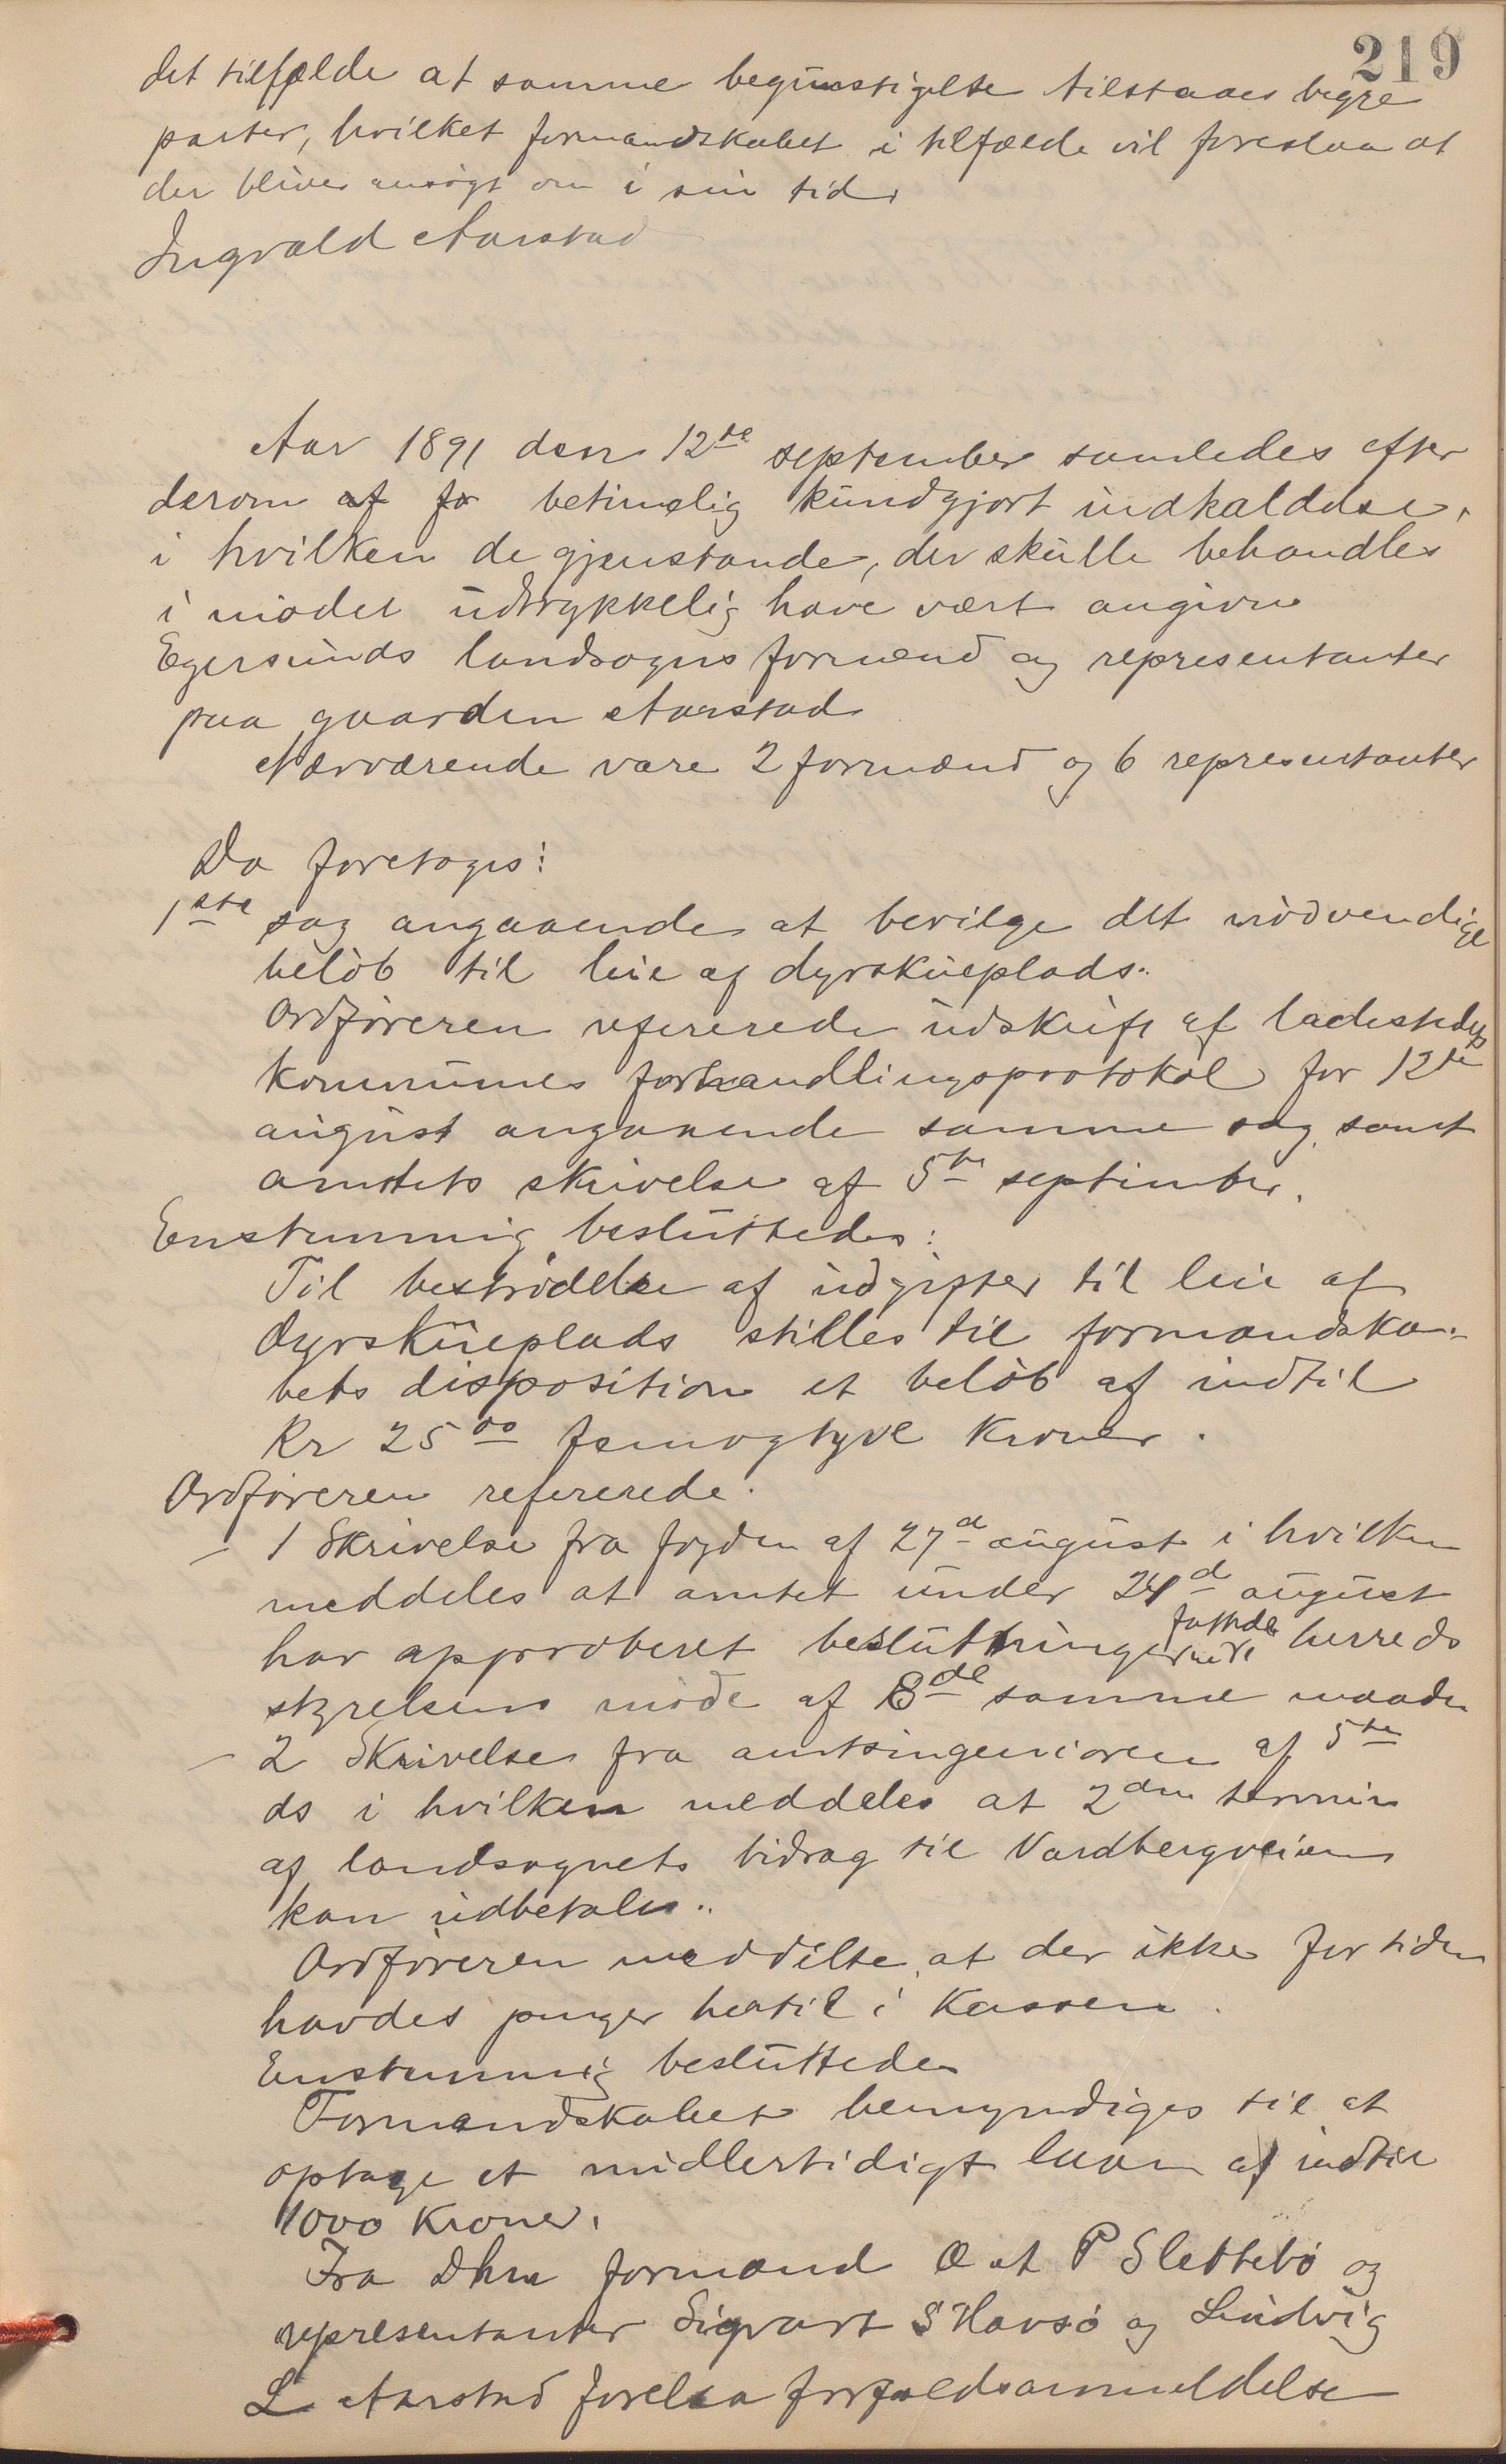 219
det tilfælde at samme begunstigelse tilstaaes begge
parter, hvilket formandskabet i tilfælde vil foreslaa at
der bliver ansøgt om i sin tid.
Ingvald Aarstad
Aar 1891 den 12te september samledes efter
derom af for betimelig kundgjort indkaldelse,
i hvilken de gjenstande, der skulle behandles
i mødet udtrykkelig have vært angivne
Egersunds landsogns formænd og representanter
paa gaarden Aarstad
Nærværende vare 2 formænd og 6 representanter
Da foretoges:
1ste sag angaaende at bevilge det nødvendige
beløb til leie af dyrskueplads.
Ordføreren refererede udskrift af ladestedets
kommunes forhandlingsprotokol for 12te
august angaaende samme sag samt
amtets skrivelse af 5te september.
Enstemmig besluttedes:
Til bestridelse af udgifter til leie af
dyrskueplads stilles til formandska-
bets disposition et beløb af indtil
Kr 25 00 femogtyve kroner.
Ordføreren refererede.
- 1 Skrivelse fra fogden af 27d august i hvilken
meddeles at amtet under 24d august
har approberet beslutninger fattede herreds
styrelsens møde af 8de samme maaned
- 2 Skrivelse fra amtsingeniøren af 5te
ds i hvilken meddeles at 2den termin
af landsognets bidrag til Vardbergveien
kan udbetales.
Ordføreren meddelte, at der ikke for tiden
havdes penger hertil i kassen.
Enstemmig besluttedes
Formandskabet bemyndiges til at
optage et midlertidigt laan af indtil
1000 kroner.
Fra Dhrr formænd O at P Slettebø og
representanter Sigvart S Havsø og Ludvig
L Aarstad forelaa forfaldsanmeldelse